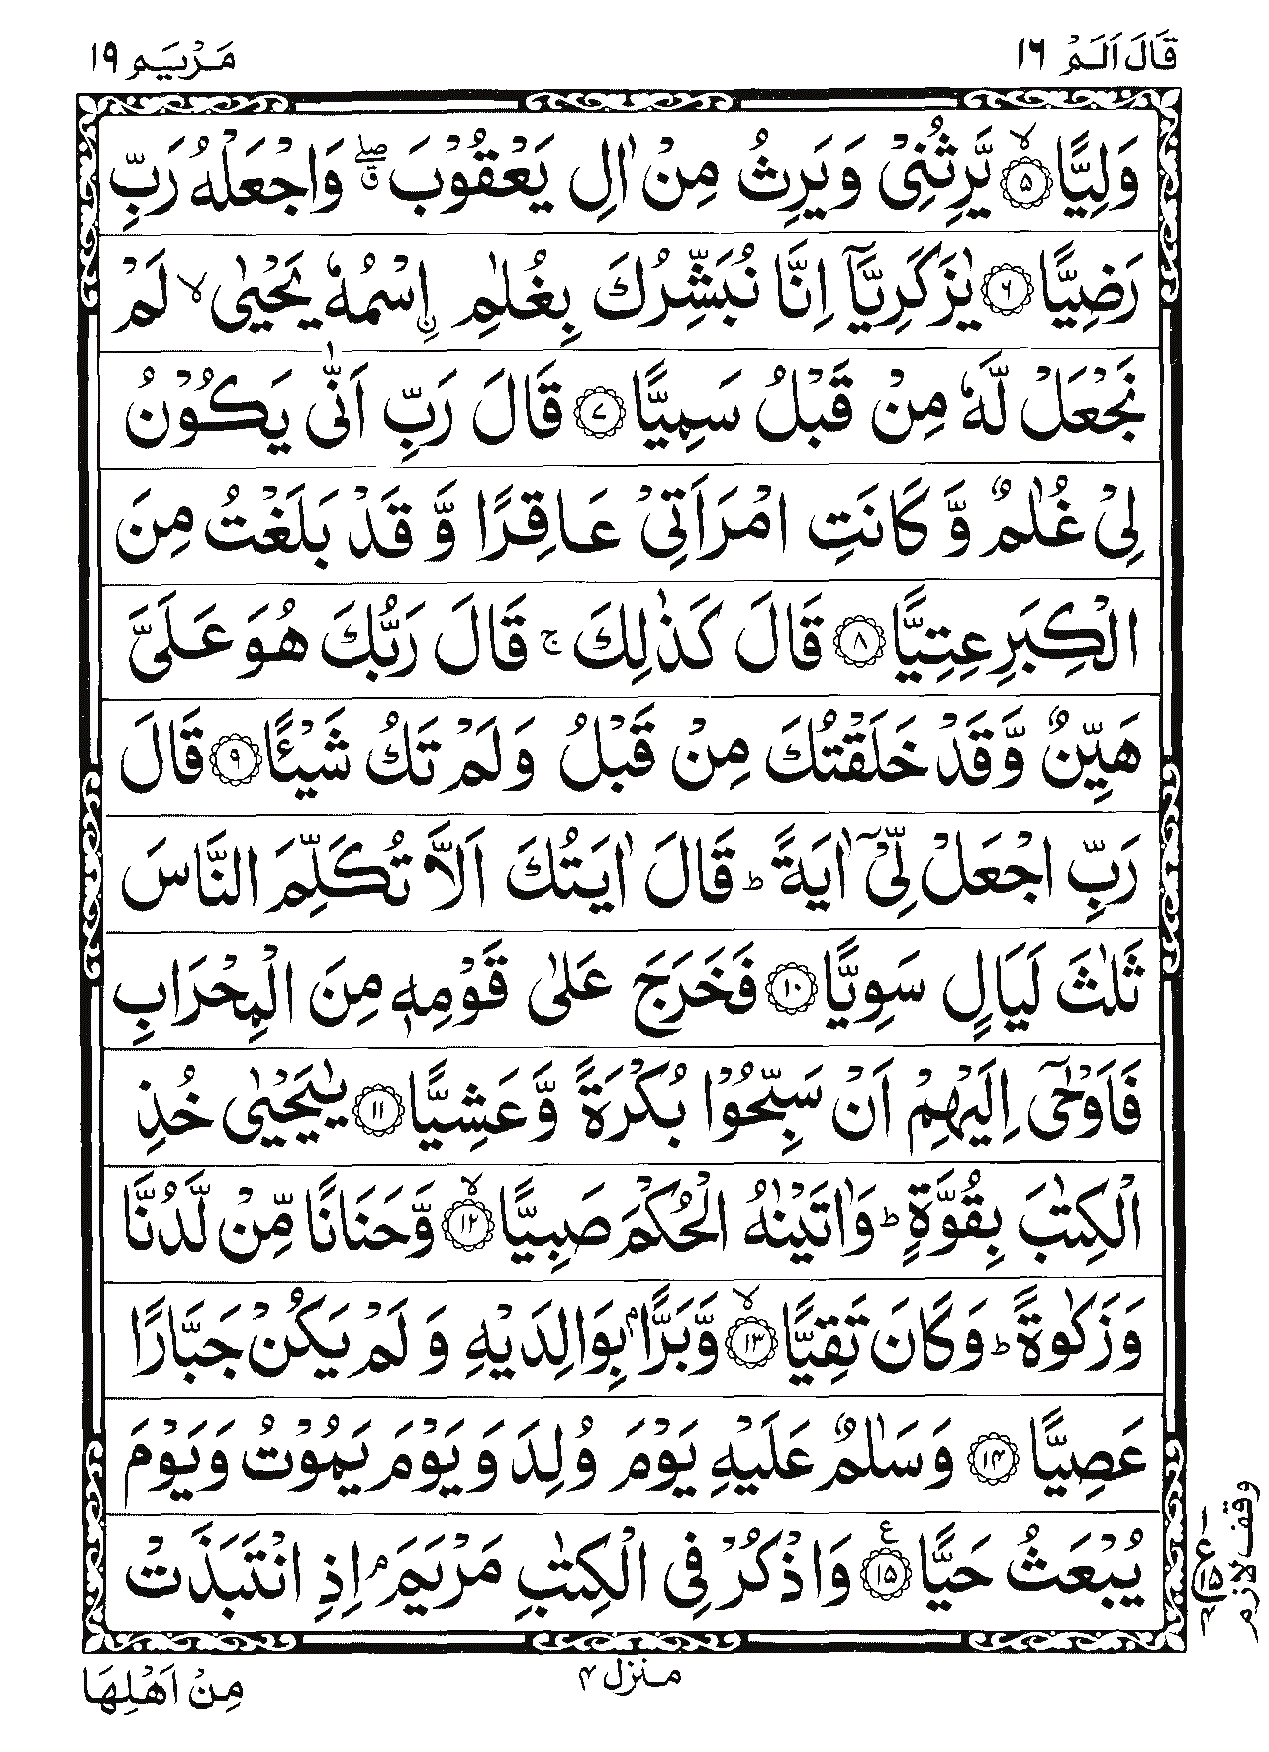 قَالَ اَلَمْ ١٦
مَرْيَم ١٩
وَلِيًّا ۙ‏﴿۵﴾ يَّرِثُنِىْ وَيَرِثُ مِنْ اٰلِ يَعْقُوْبَ ۖۗ وَاجْعَلْهُ رَبِّ
رَضِيًّا ﴿۶﴾ يٰزَكَرِيَّاۤ اِنَّا نُبَشِّرُكَ بِغُلٰمِ ۨاسْمُهٗ يَحْيٰى ۙ لَمْ
نَجْعَلْ لَّهٗ مِنْ قَبْلُ سَمِيًّا ﴿۷﴾ قَالَ رَبِّ اَنّٰى يَكُوْنُ
لِىْ غُلٰمٌ وَّ كَانَتِ امْرَاَتِىْ عَاقِرًا وَّ قَدْ بَلَغْتُ مِنَ
الْكِبَرِ عِتِيًّا ﴿۸﴾ قَالَ كَذٰلِكَ ۚ قَالَ رَبُّكَ هُوَ عَلَىَّ
هَيِّنٌ وَّقَدْ خَلَقْتُكَ مِنْ قَبْلُ وَلَمْ تَكُ شَيْـًٔا ﴿۹﴾ قَالَ
رَبِّ اجْعَلْ لِّىْۤ اٰيَةً ؕ قَالَ اٰيَتُكَ اَلَّا تُكَلِّمَ النَّاسَ
ثَلٰثَ لَيَالٍ سَوِيًّا ﴿۱۰﴾ فَخَرَجَ عَلٰى قَوْمِهٖ مِنَ الْمِحْرَابِ
فَاَوْحٰٓى اِلَيْهِمْ اَنْ سَبِّحُوْا بُكْرَةً وَّعَشِيًّا ﴿۱۱﴾ يٰيَحْيٰى خُذِ
الْكِتٰبَ بِقُوَّةٍ ؕ وَاٰتَيْنٰهُ الْحُكْمَ صَبِيًّا ۙ‏﴿۱۲﴾ وَّحَنَانًا مِّنْ لَّدُنَّا
وَزَكٰوةً ؕ وَكَانَ تَقِيًّا ۙ‏﴿۱۳﴾ وَّبَرًّاۢ بِوَالِدَيْهِ وَلَمْ يَكُنْ جَبَّارًا
عَصِيًّا ﴿۱۴﴾ وَسَلٰمٌ عَلَيْهِ يَوْمَ وُلِدَ وَيَوْمَ يَمُوْتُ وَيَوْمَ
يُبْعَثُ حَيًّا ﴿۱۵﴾ ع وَاذْكُرْ فِى الْكِتٰبِ مَرْيَمَ ۘ اِذِ انْتَبَذَتْ
وقف لازم
ع ١٥ ۴
منزل ۴
مِنْ اَهْلِهَا